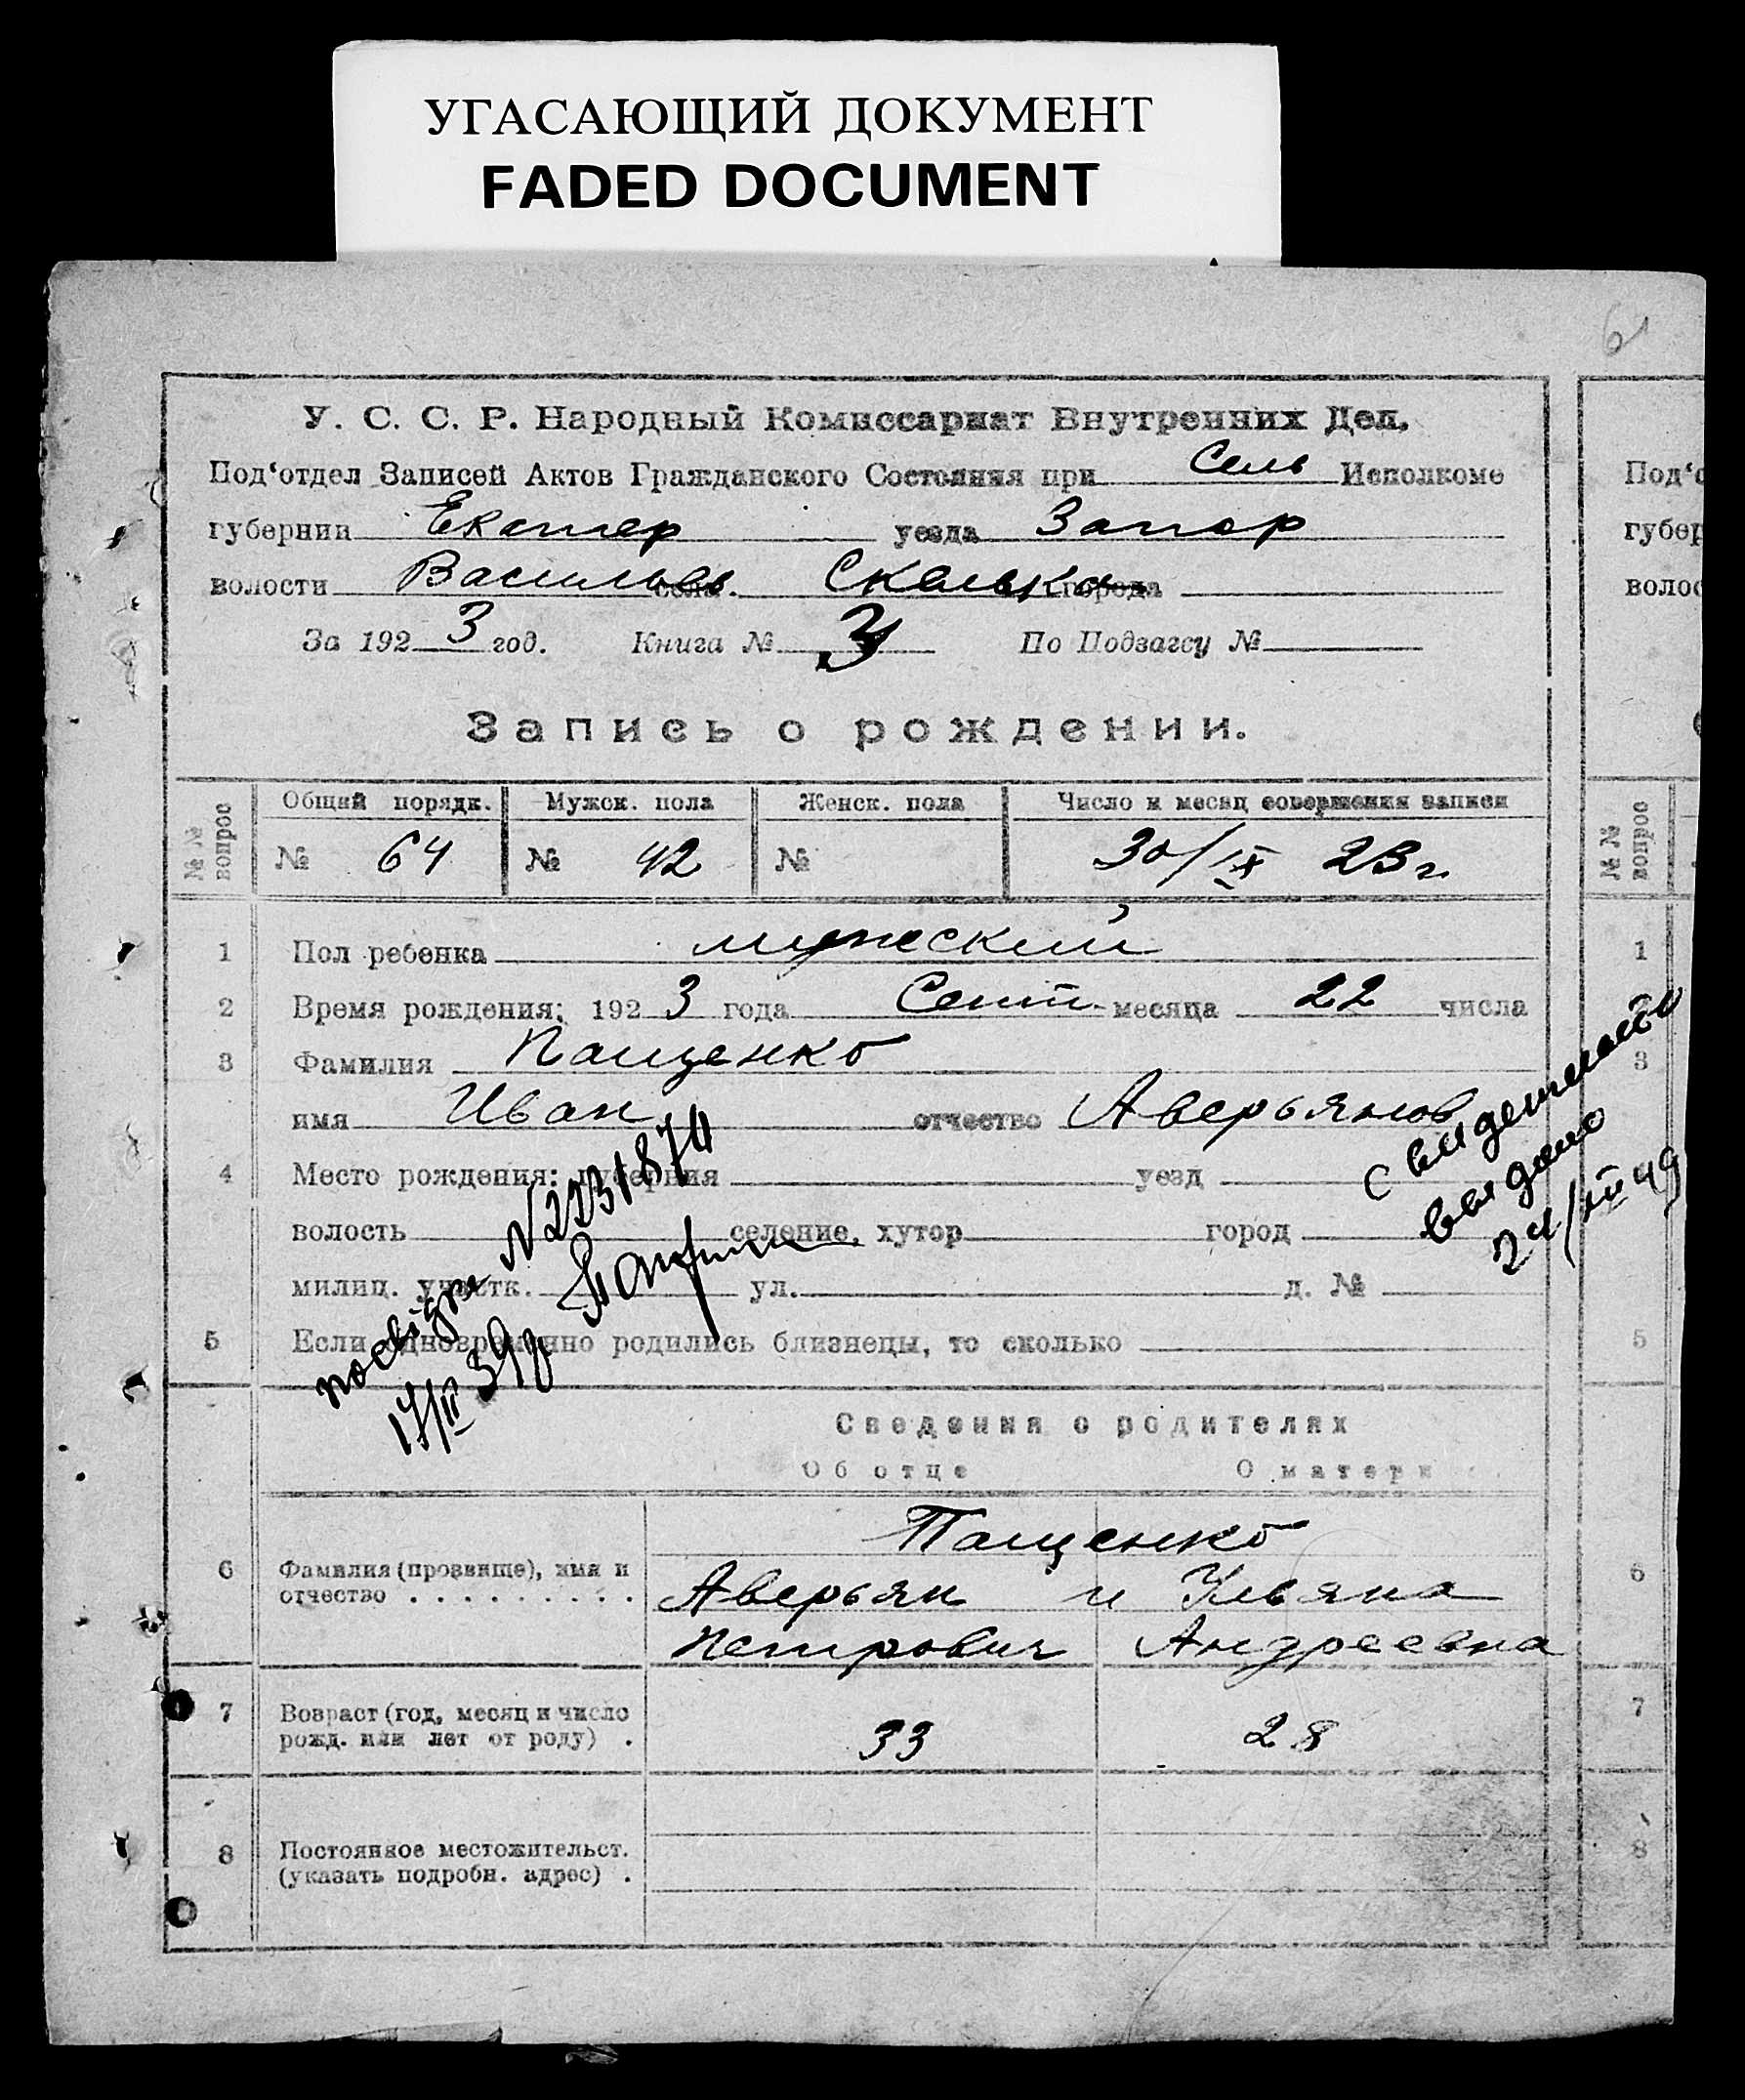 УГАСАЮЩИЙ ДОКУМЕНТ
FADED DOCUMENT
61
У. С. С. Р. Народный Комиссариат Внутренних Дел.
Под‘отдел Записей Актов Гражданского Состояния при Сель Исполкоме
губернии Екатер уезда Запор
волости Васильев села. Скельки города
За 192 3 год. Книга № 3 По Подзагсу №
Запись о рождении.
№ № вопрос
Общий порядк. Мужск. пола Женск. пола Число и месяц совершения записи
№ 64 № 42 № 30/IX 23 г.
1 Пол ребенка мужеский
2 Время рождения: 192 3 года Сент. месяца 22 числа
3 Фамилия Пащенко
имя Иван отчество Аверьянов
4 Место рождения: губерния уезд
волость селение, хутор город
милиц. участк. ул. д. №
5 Если одновременно родились близнецы, то сколько
свидетельство
выдано
24/III 49
17/II 39р
Сведения о родителях
Об отце О матери
Пащенко
6 Фамилия (прозвище), имя и
отчество . . . . . . . . . Аверьян и Ульяна
Петрович Андреевна
7 Возраст (год, месяц и число
рожд. или лет от роду) . 33 28
8 Постоянное местожительст.
(указать подробн. адрес) .
Под‘о
губер
волос
№ № вопрос
1
3
5
6
7
8